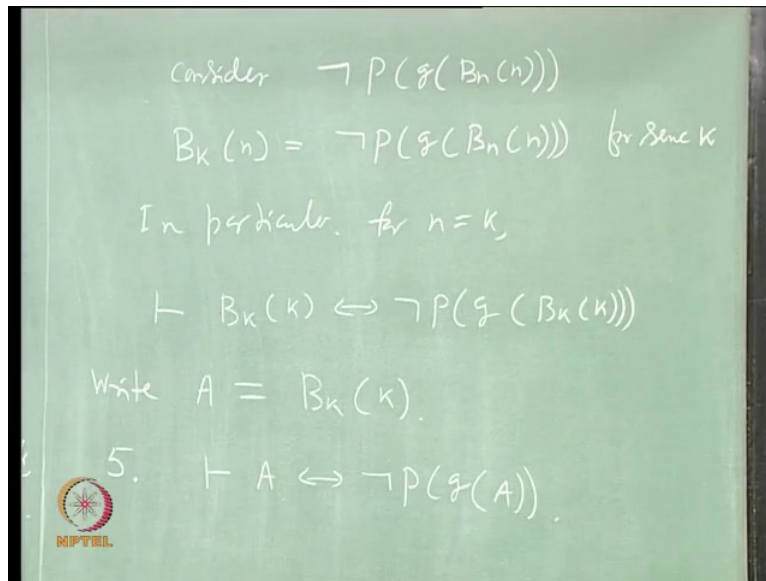 Consider ¬P(g(Bn(n)))
Bk(n) = ¬P(g(Bn(n))) for some k
In particular. for n = k,
⊢ Bk(k) ↔ ¬P(g(Bk(k)))
Write A = Bk(k).
5. ⊢ A ↔ ¬P(g(A)).
NPTEL